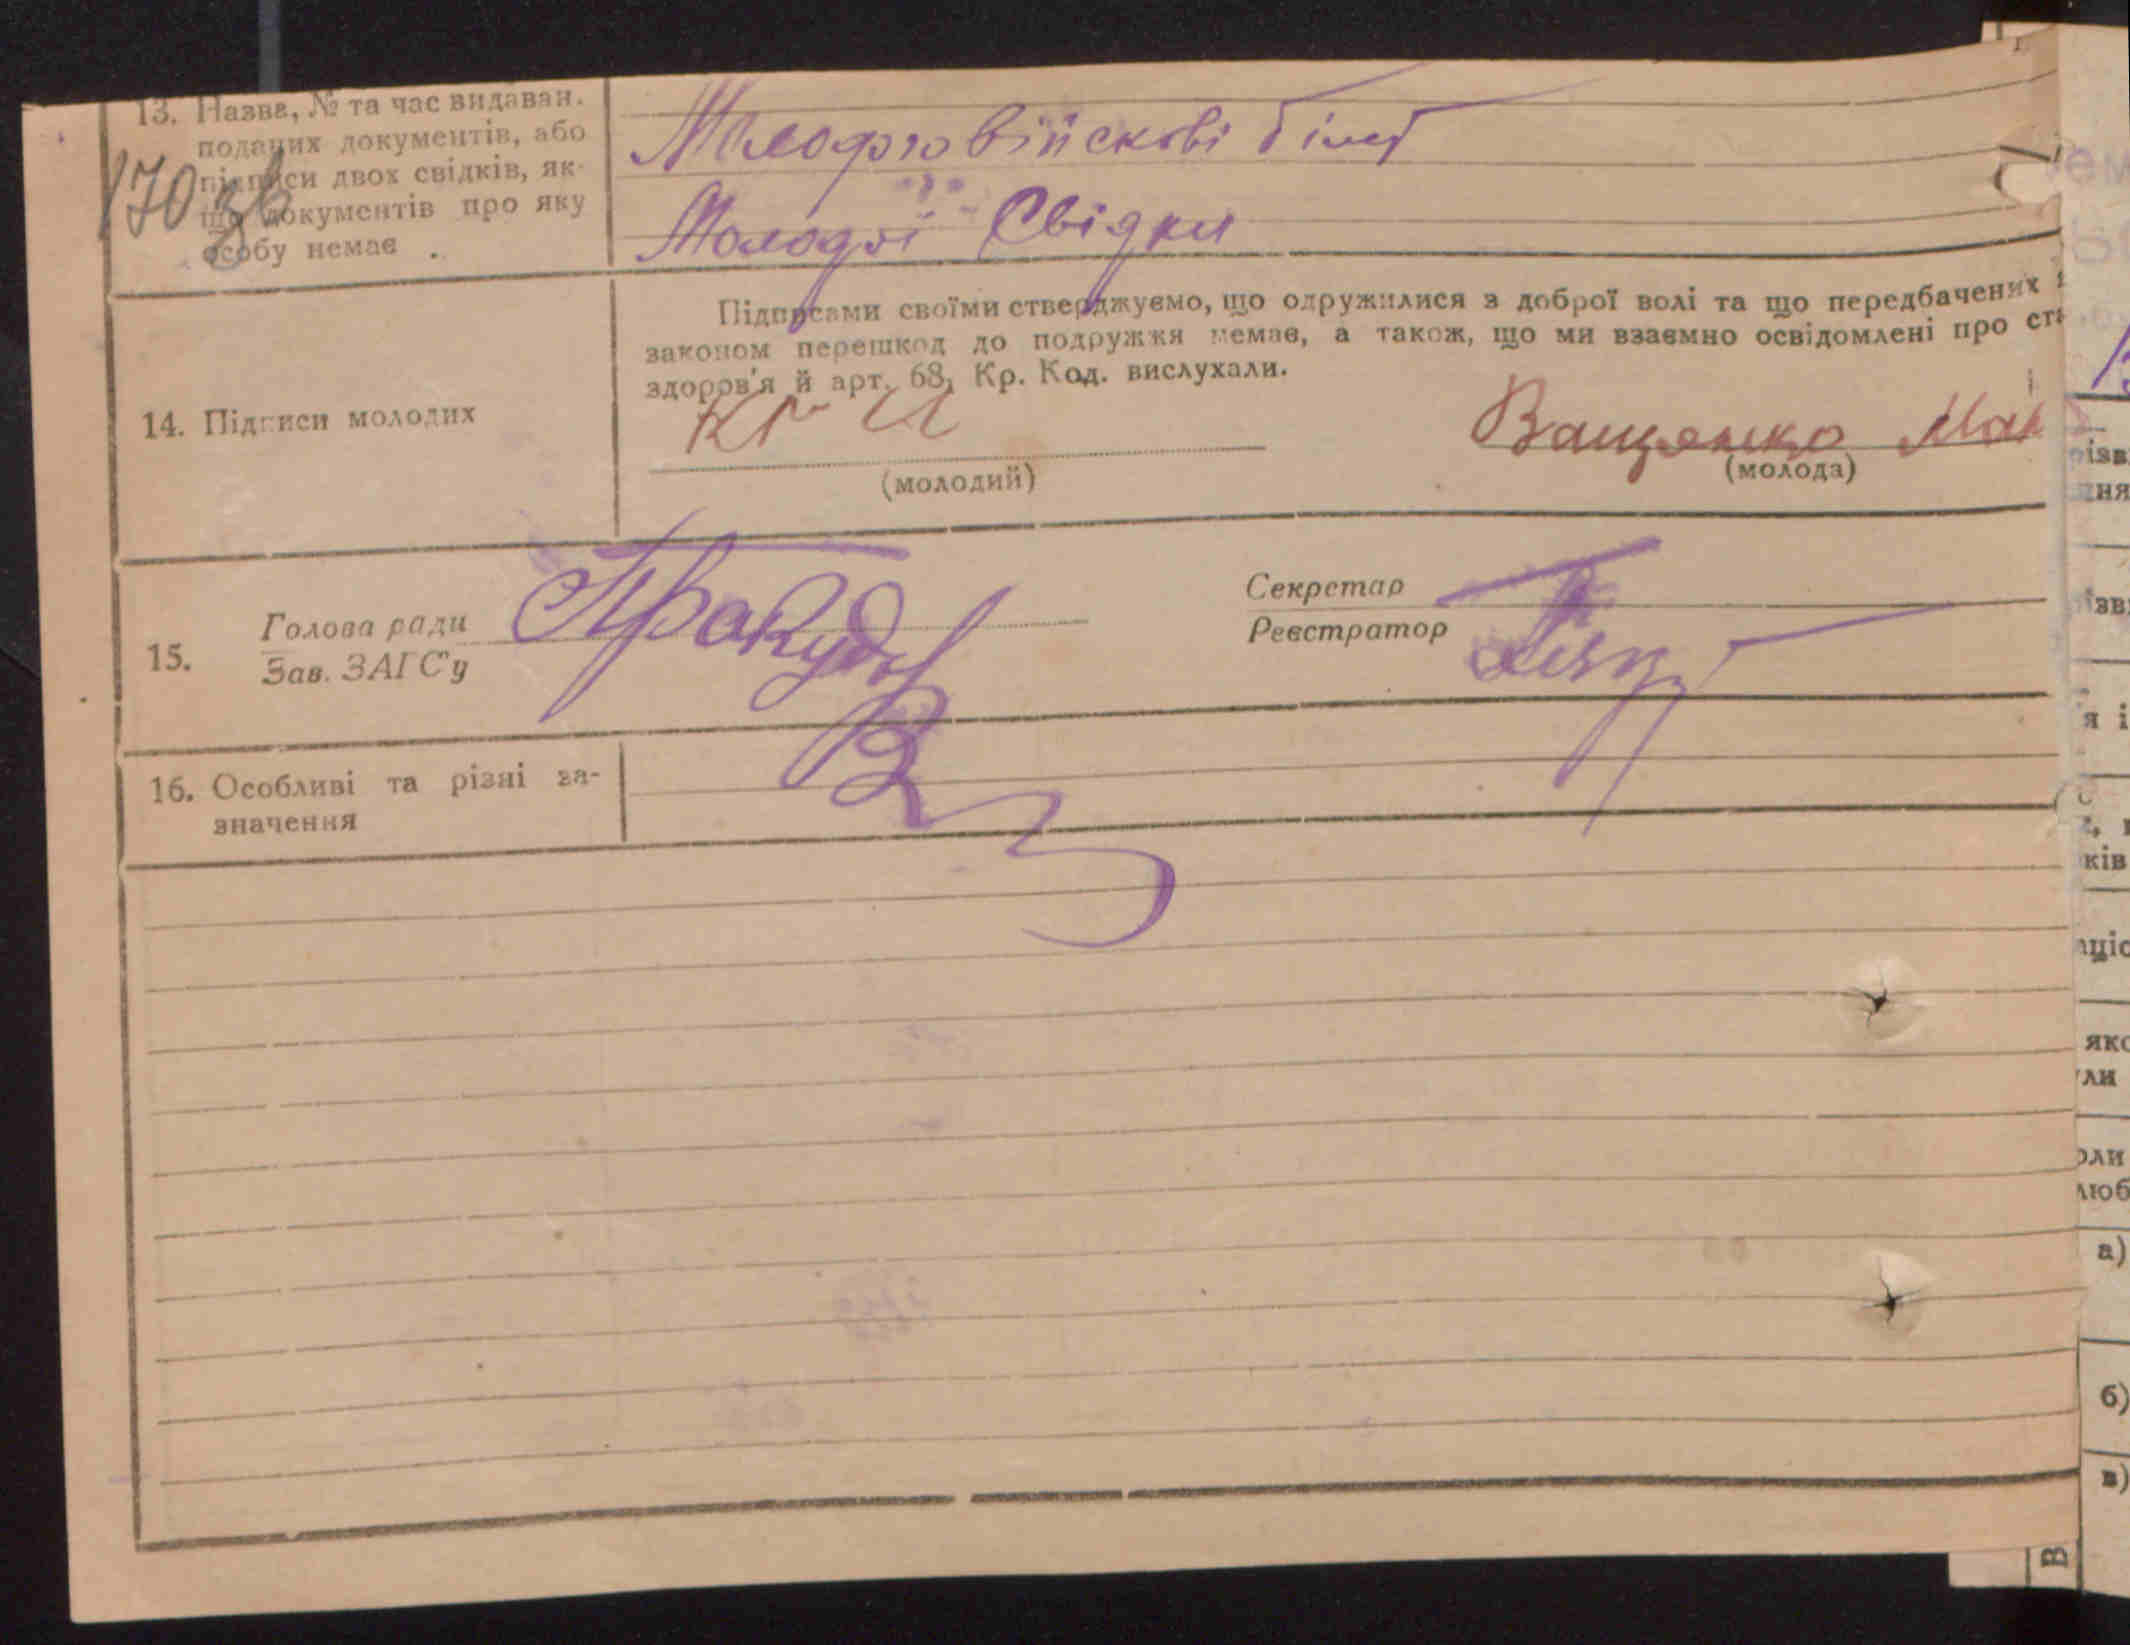 13. Назва, № та час видаван.
поданих документів, або
підписи двох свідків, як-
що документів про яку
особу немає .
170 зв
Молодого війскові білет
Молодої Свідки
Підписами своїми стверджуємо, що одружилися з доброї волі та що передбачених
законом перешкод до подружжя немає, а також, що ми взаємно освідомлені про ста
здоров'я й арт. 68, Кр. Код. вислухали.
14. Підписи молодих
Ващенко Мак
(молодий)
(молода)
15.
Голова ради
Зав. ЗАГС'у
Секретар
Реєстратор
16. Особливі та різні за-
значення